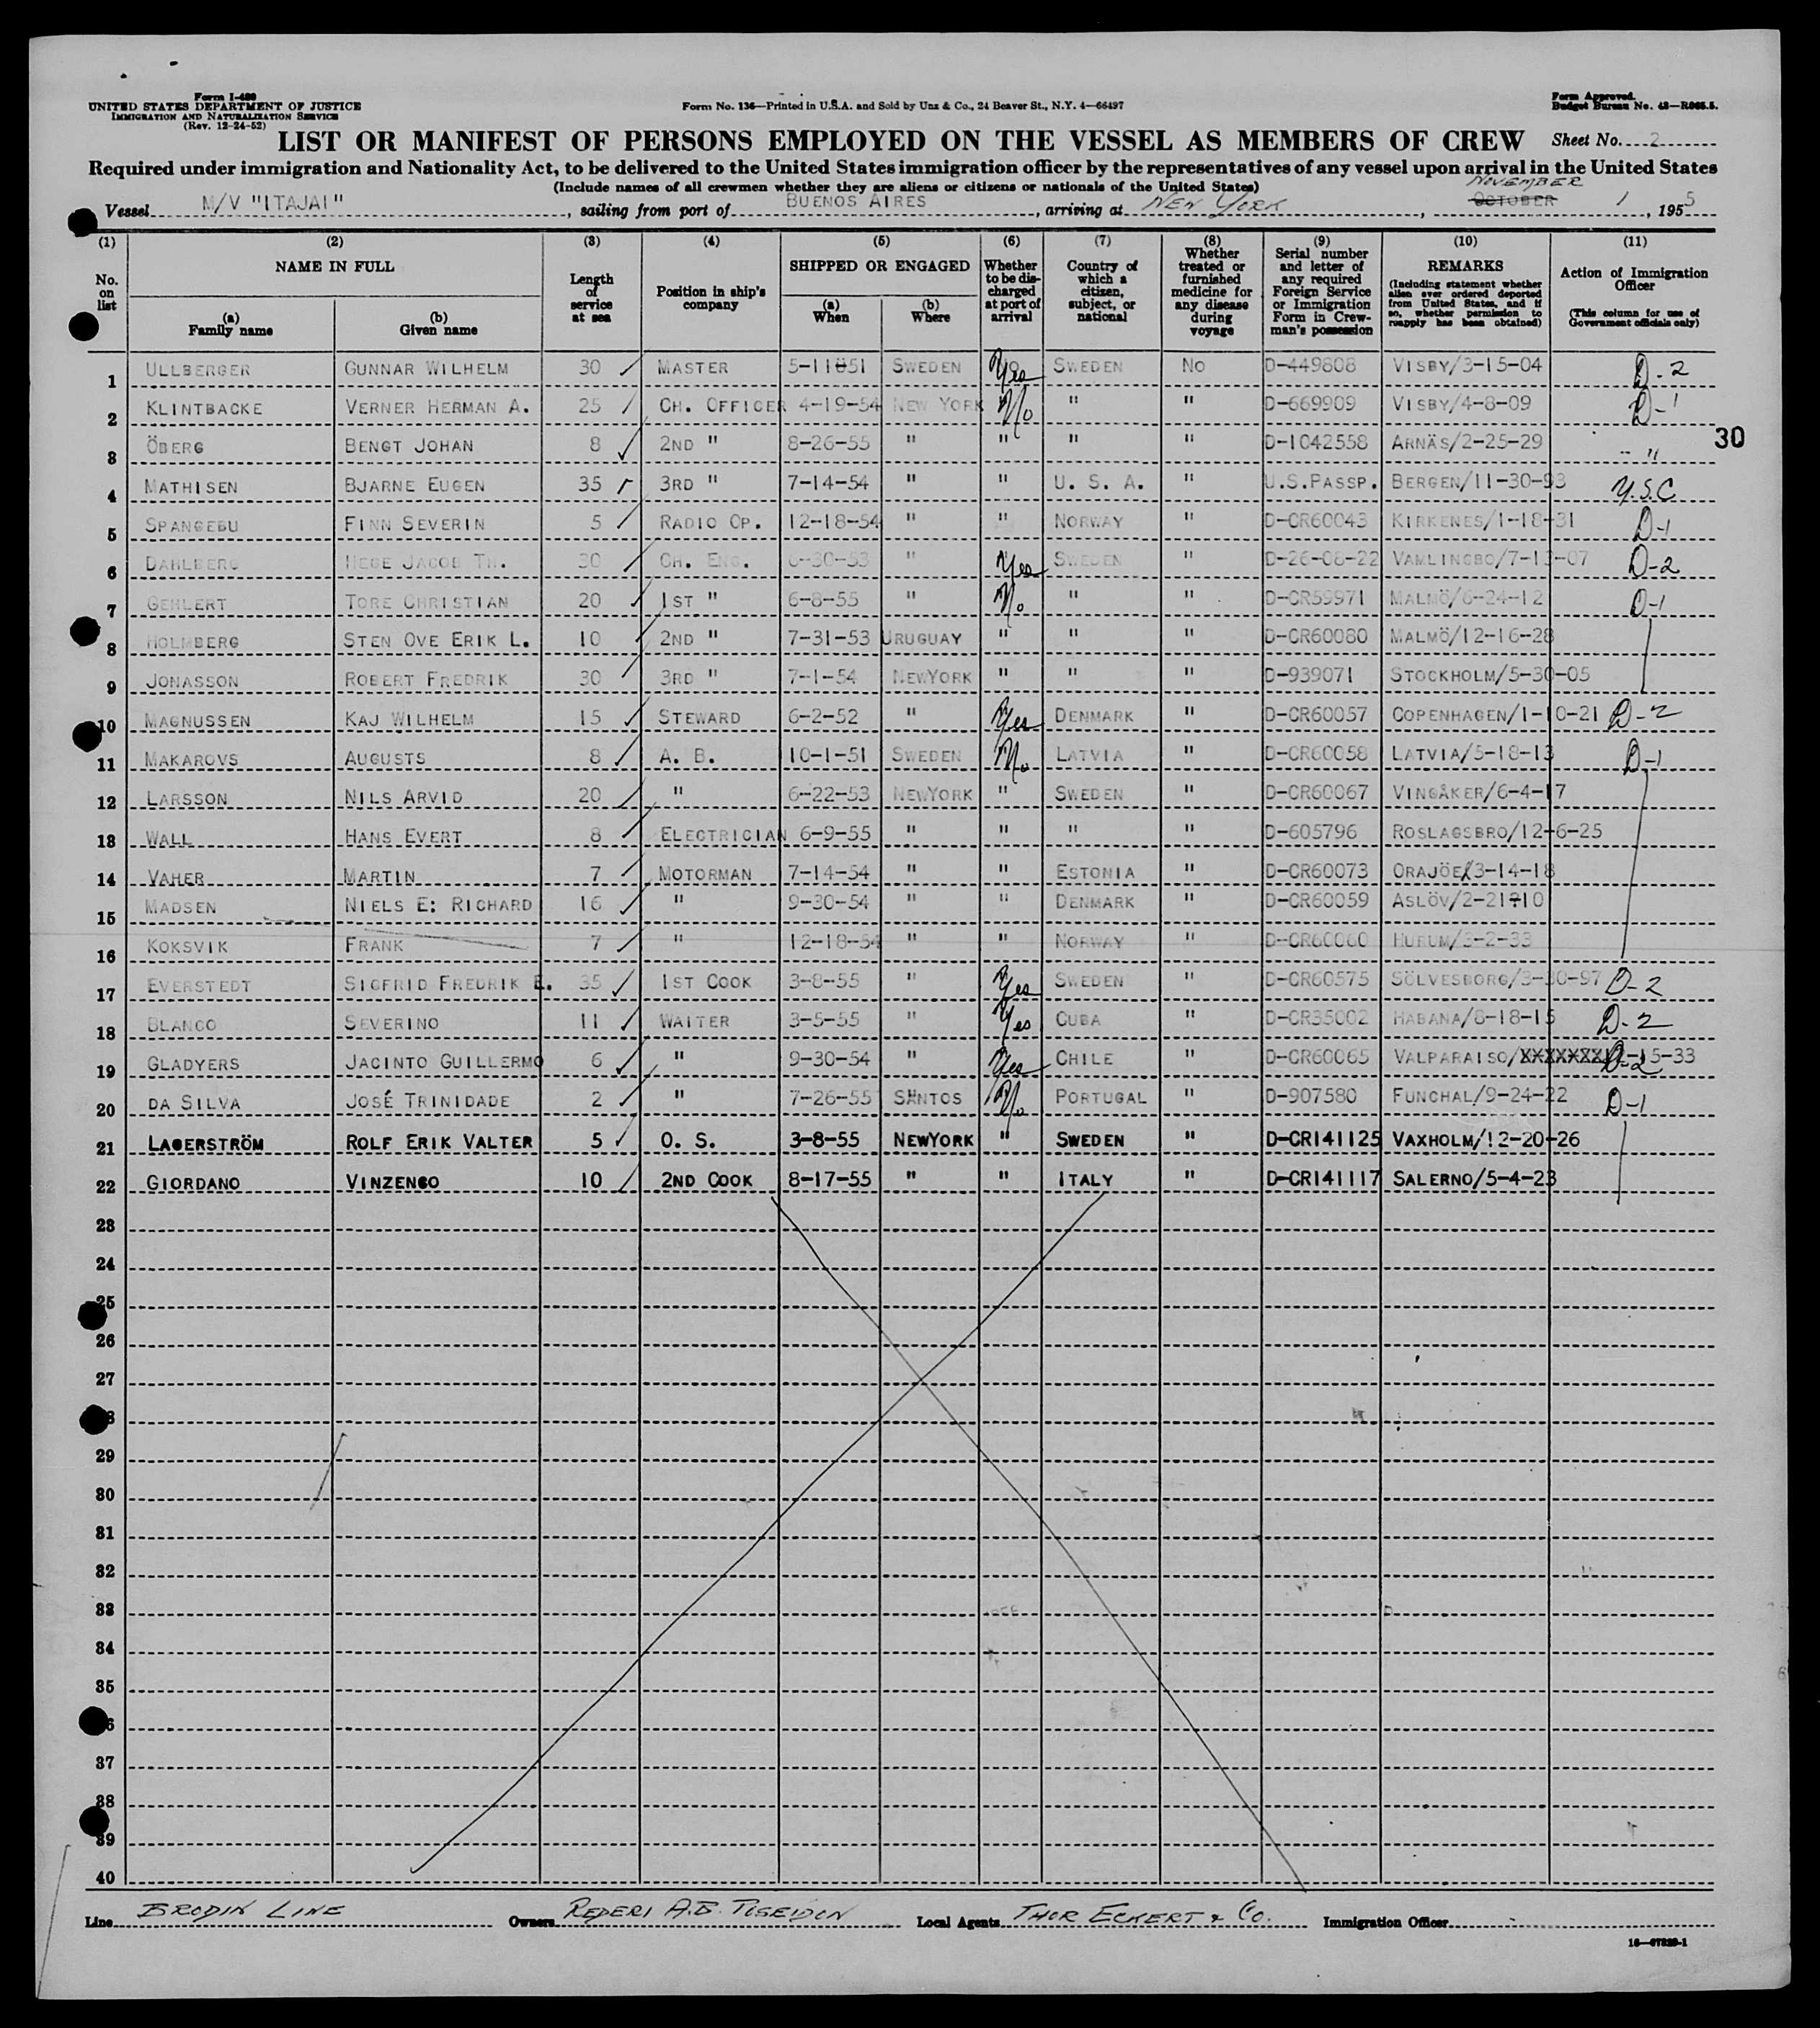 Form I-480
UNITED STATES DEPARTMENT OF JUSTICE
IMMIGRATION AND NATURALIZATION SERVICE
(Rev. 12-24-52)
Form No. 136—Printed in U.S.A. and Sold by Unz & Co., 24 Beaver St., N.Y. 4—66497
Form Approved.
Budget Bureau No. 43—R065.5.
LIST OR MANIFEST OF PERSONS EMPLOYED ON THE VESSEL AS MEMBERS OF CREW Sheet No. 2
Required under immigration and Nationality Act, to be delivered to the United States immigration officer by the representatives of any vessel upon arrival in the United States
(Include names of all crewmen whether they are aliens or citizens or nationals of the United States)
NOVEMBER
Vessel M/V "ITAJAI", sailing from port of BUENOS AIRES, arriving at NEW YORK, OCTOBER 1, 1955
(1) (2) (3) (4) (5) (6) (7) (8) (9) (10) (11)
No. on list
NAME IN FULL
(a) Family name
(b) Given name
Length of service at sea
Position in ship's company
SHIPPED OR ENGAGED
(a) When
(b) Where
Whether to be discharged at port of arrival
Country of which a citizen, subject, or national
Whether treated or furnished medicine for any disease during voyage
Serial number and letter of any required Foreign Service or Immigration Form in Crewman's possession
REMARKS
(Including statement whether alien ever ordered deported from United States, and if so, whether permission to reapply has been obtained)
Action of Immigration Officer
(This column for use of Government officials only)
1 ULLBERGER GUNNAR WILHELM 30 ✓ MASTER 5-11-51 SWEDEN Yes SWEDEN NO D-449808 VISBY/3-15-04 D-2
2 KLINTBACKE VERNER HERMAN A. 25 ✓ CH. OFFICER 4-19-54 NEW YORK No " " D-669909 VISBY/4-8-09 D-1
3 ÖBERG BENGT JOHAN 8 ✓ 2ND " 8-26-55 " " " " D-1042558 ARNÄS/2-25-29 "
30
4 MATHISEN BJARNE EUGEN 35 ✓ 3RD " 7-14-54 " " U. S. A. " U.S.PASSP. BERGEN/11-30-93 U.S.C
5 SPANGEBU FINN SEVERIN 5 ✓ RADIO OP. 12-18-54 " " NORWAY " D-CR60043 KIRKENES/1-18-31 D-1
6 DAHLBERG HEGE JACOB TH. 30 ✓ CH. ENG. 6-30-53 " Yes SWEDEN " D-26-08-22 VAMLINGBO/7-13-07 D-2
7 GEHLERT TORE CHRISTIAN 20 ✓ 1ST " 6-8-55 " No " " D-CR59971 MALMÖ/6-24-12 D-1
8 HOLMBERG STEN OVE ERIK L. 10 ✓ 2ND " 7-31-53 URUGUAY " " " D-CR60080 MALMÖ/12-16-28
9 JONASSON ROBERT FREDRIK 30 ✓ 3RD " 7-1-54 NEWYORK " " " D-939071 STOCKHOLM/5-30-05
10 MAGNUSSEN KAJ WILHELM 15 ✓ STEWARD 6-2-52 " Yes DENMARK " D-CR60057 COPENHAGEN/1-10-21 D-2
11 MAKAROVS AUGUSTS 8 ✓ A. B. 10-1-51 SWEDEN No LATVIA " D-CR60058 LATVIA/5-18-13 D-1
12 LARSSON NILS ARVID 20 ✓ " 6-22-53 NEWYORK " SWEDEN " D-CR60067 VINGÅKER/6-4-17
13 WALL HANS EVERT 8 ✓ ELECTRICIAN 6-9-55 " " " " D-605796 ROSLAGSBRO/12-6-25
14 VAHER MARTIN 7 ✓ MOTORMAN 7-14-54 " " ESTONIA " D-CR60073 ORAJÖE/3-14-18
15 MADSEN NIELS E: RICHARD 16 ✓ " 9-30-54 " " DENMARK " D-CR60059 ASLÖV/2-21-10
16 KOKSVIK FRANK 7 ✓ " 12-18-54 " " NORWAY " D-CR60060 HURUM/3-2-33
17 EVERSTEDT SIGFRID FREDRIK E. 35 ✓ 1ST COOK 3-8-55 " Yes SWEDEN " D-CR60575 SÖLVESBORG/3-30-97 D-2
18 BLANCO SEVERINO 11 ✓ WAITER 3-5-55 " Yes CUBA " D-CR35002 HABANA/8-18-15 D-2
19 GLADYERS JACINTO GUILLERMO 6 ✓ " 9-30-54 " Yes CHILE " D-CR60065 VALPARAISO/XXXXXXX -15-33 D-2
20 DA SILVA JOSÉ TRINIDADE 2 ✓ " 7-26-55 SANTOS No PORTUGAL " D-907580 FUNCHAL/9-24-22 D-1
21 LAGERSTRÖM ROLF ERIK VALTER 5 ✓ O. S. 3-8-55 NEWYORK " SWEDEN " D-CR141125 VAXHOLM/12-20-26
22 GIORDANO VINZENGO 10 ✓ 2ND COOK 8-17-55 " " ITALY " D-CR141117 SALERNO/5-4-23
23
24
25
26
27
28
29
30
31
32
33
34
35
36
37
38
39
40
Line BRODIN LINE Owners REDERI A.B. POSEIDON Local Agents THOR ECKERT & Co. Immigration Officer